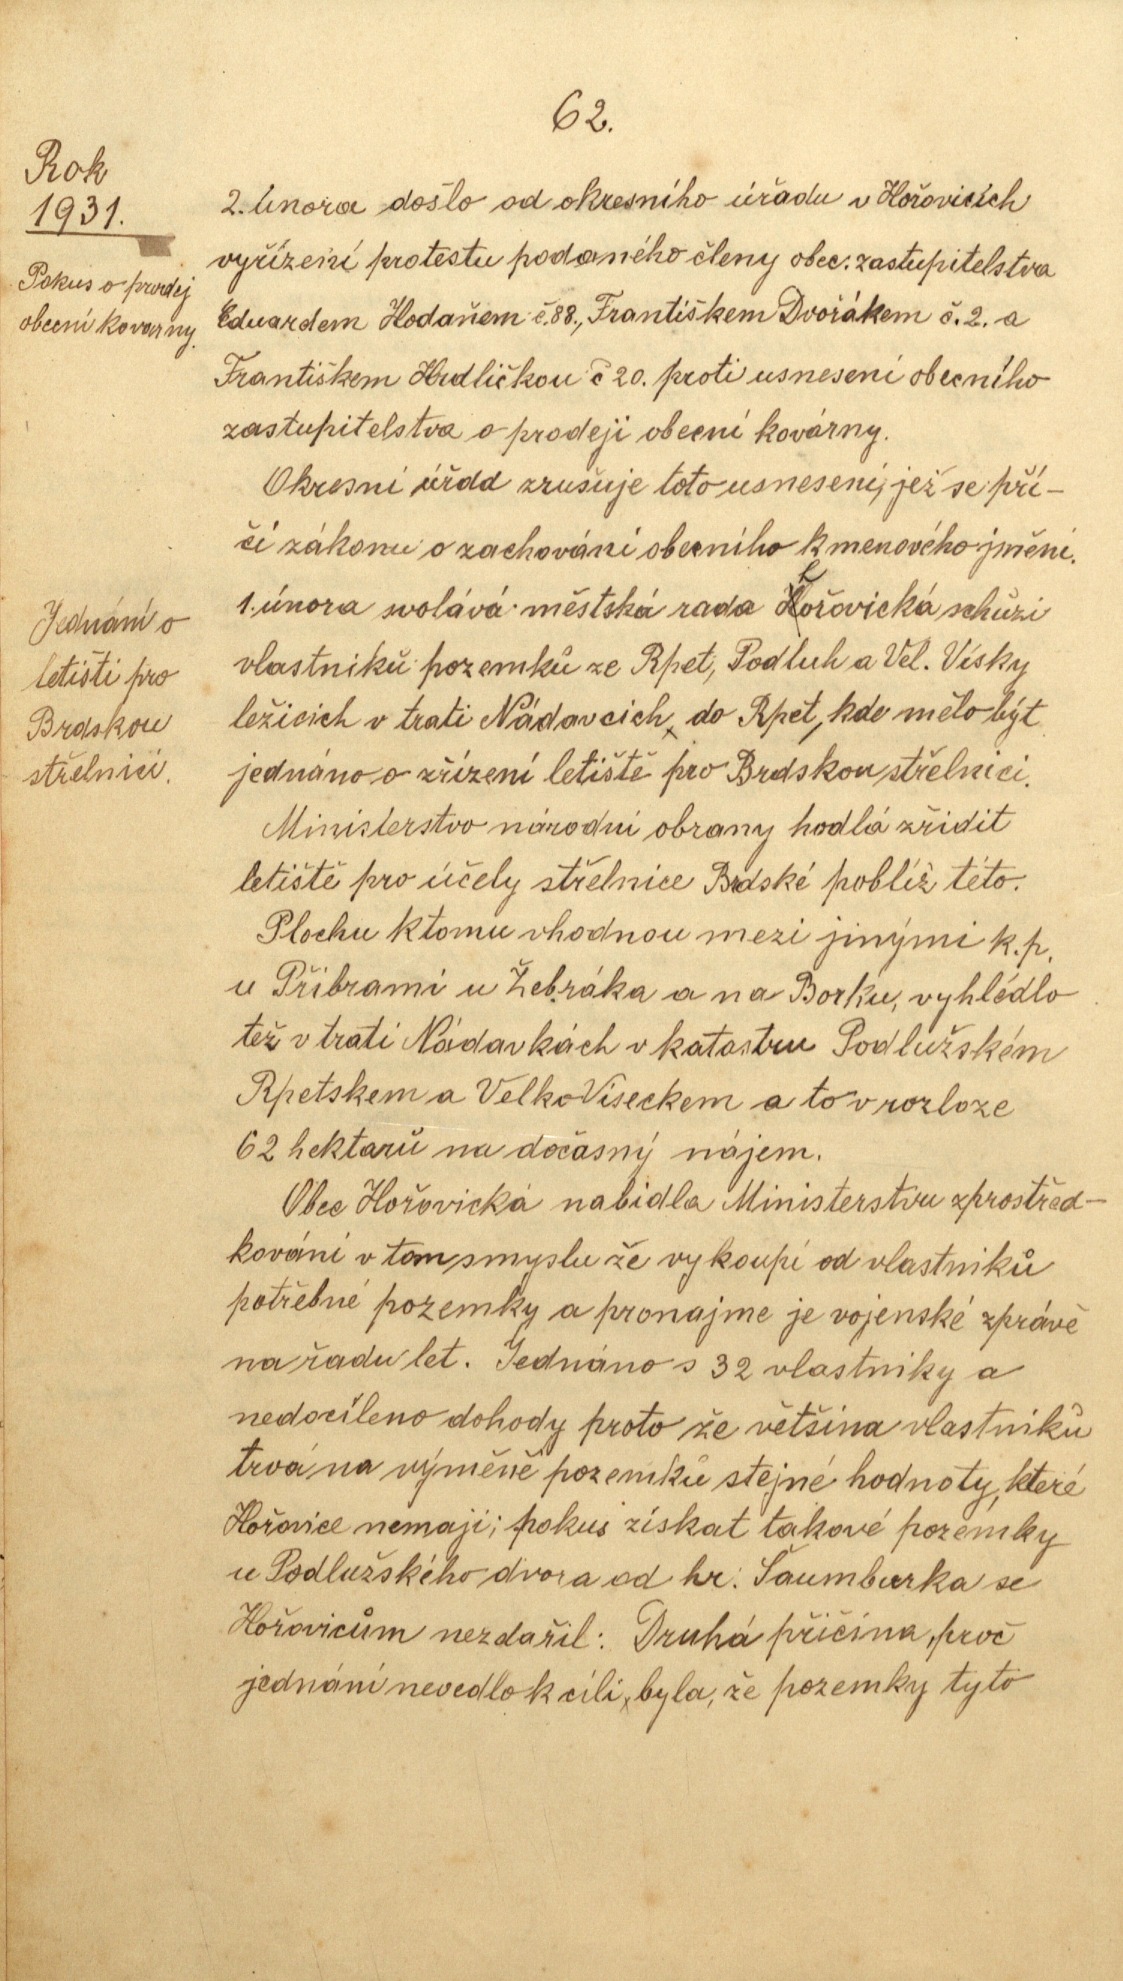 62.
Rok
1931.
Pokus o prodej
obecní kovarny.
2. února došlo od okresního úřadu v Hořovicích
vyřízení protestu podaného členy obec. zastupitelstva
Eduardem Hodaňem č.88., Františkem Dvořákem č. 2. a
Františkem Hrdličkou č 20. proti usnesení obecního
zastupitelstva o prodeji obecní kovárny.
Okresní úřad zrušuje toto usnesení, jež se pří-
čí zákonu o zachování obecního kmenového jmění.
Jednání o
letišti pro
Brdskou
střelnici.
1. února svolává městská rada hořovická schůzi
vlastníků pozemků ze Rpet, Podluh a Vel. Vísky
ležících v trati Nádavcích, do Rpet, kde mělo být
jednáno o zřízení letiště pro Brdskou střelnici.
Ministerstvo národní obrany hodlá zřídit
letiště pro účely střelnice Brdské poblíž této.
Plochu ktomu vhodnou mezi jinými k.p.
u Příbrami u Žebráka a na Borku, vyhlédlo
též v trati Nádavkách v katastru Podlužském
Rpetskem a VelkoViseckem a to v rozloze
62 hektarů na dočasný nájem.
Obec Hořovická nabídla Ministerstvu zprostřed-
kování v tom smyslu že vykoupí od vlastníků
potřebné pozemky a pronajme je vojenské zprávě
na řadu let. Jednáno s 32 vlastníky a
nedocíleno dohody proto že většina vlastníků
trvá na výměně pozemků stejné hodnoty, které
Hořovice nemají; pokus získat takové pozemky
u Podlužského dvora od hr. Šaumburka se
Hořovicům nezdařil: Druhá příčina, proč
jednání nevedlo k cíli, byla, že pozemky tyto